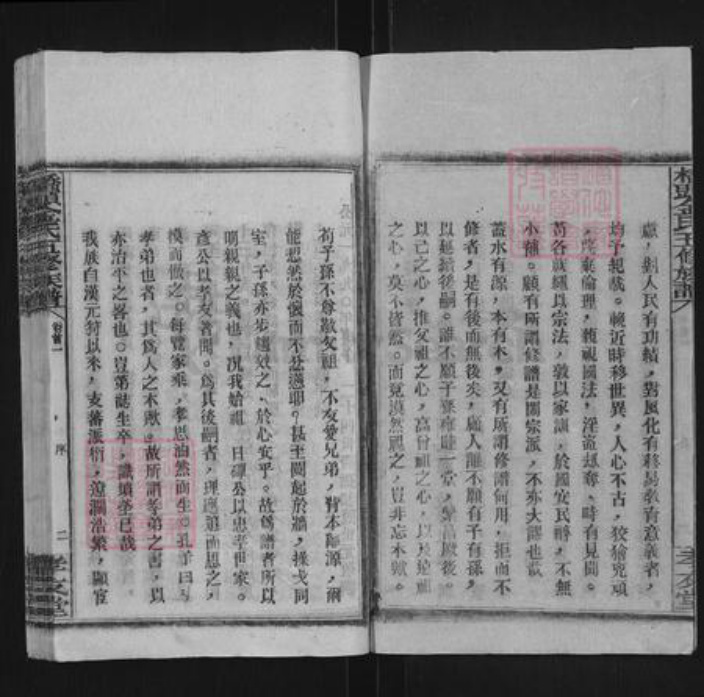 應，對人民有功績，對風化有移易教育意義者，
均予紀載。輓近時移世異，人心不古，狡獪兇頑
棄倫理，藐視國法，淫盜劫奪，時有見聞。
苟各族繩以宗法，敎以家訓，於國安民靖，不無
小補。顧有所謂修譜是開宗派，不亦大謬也哉
蓋水有源，本有木，又有所謂修譜何用，拒而不
修者，是有後而無後矣，顧人誰不願有子有孫，
以延續後嗣。誰不願子孫雍睦一堂，昌厥後。
以己之心，推父祖之心，高曾祖之心，以及遠祖
之心，莫不皆然。而竟漠然視之，豈非忘本歟。
苟子孫不尊敬父祖，不友愛兄弟，背本歸源，爾
能想然於懷而不忿懣耶？甚至鬩起於牆，操戈同
室，子孫亦步趨效之、於心安乎。故為譜者所以
明親親之義也，况我始祖 日磾公以忠孝世家。
彥公以孝友著聞。為其後嗣者，理應追而思之，
慎而倣之。每覽家乘，孝思油然而生。孔子曰
孝弟也者，其為人之本歟。故所謂孝弟之書，以
亦治平之畧也。豈第誌生卒，識墳塋已哉
我族自漢元狩以來，支蕃派衍，遼濶浩繁，顯宦
橋頭金氏五修族譜
卷首一
序
二
孝友堂
橋頭金氏五修族譜
孝友堂